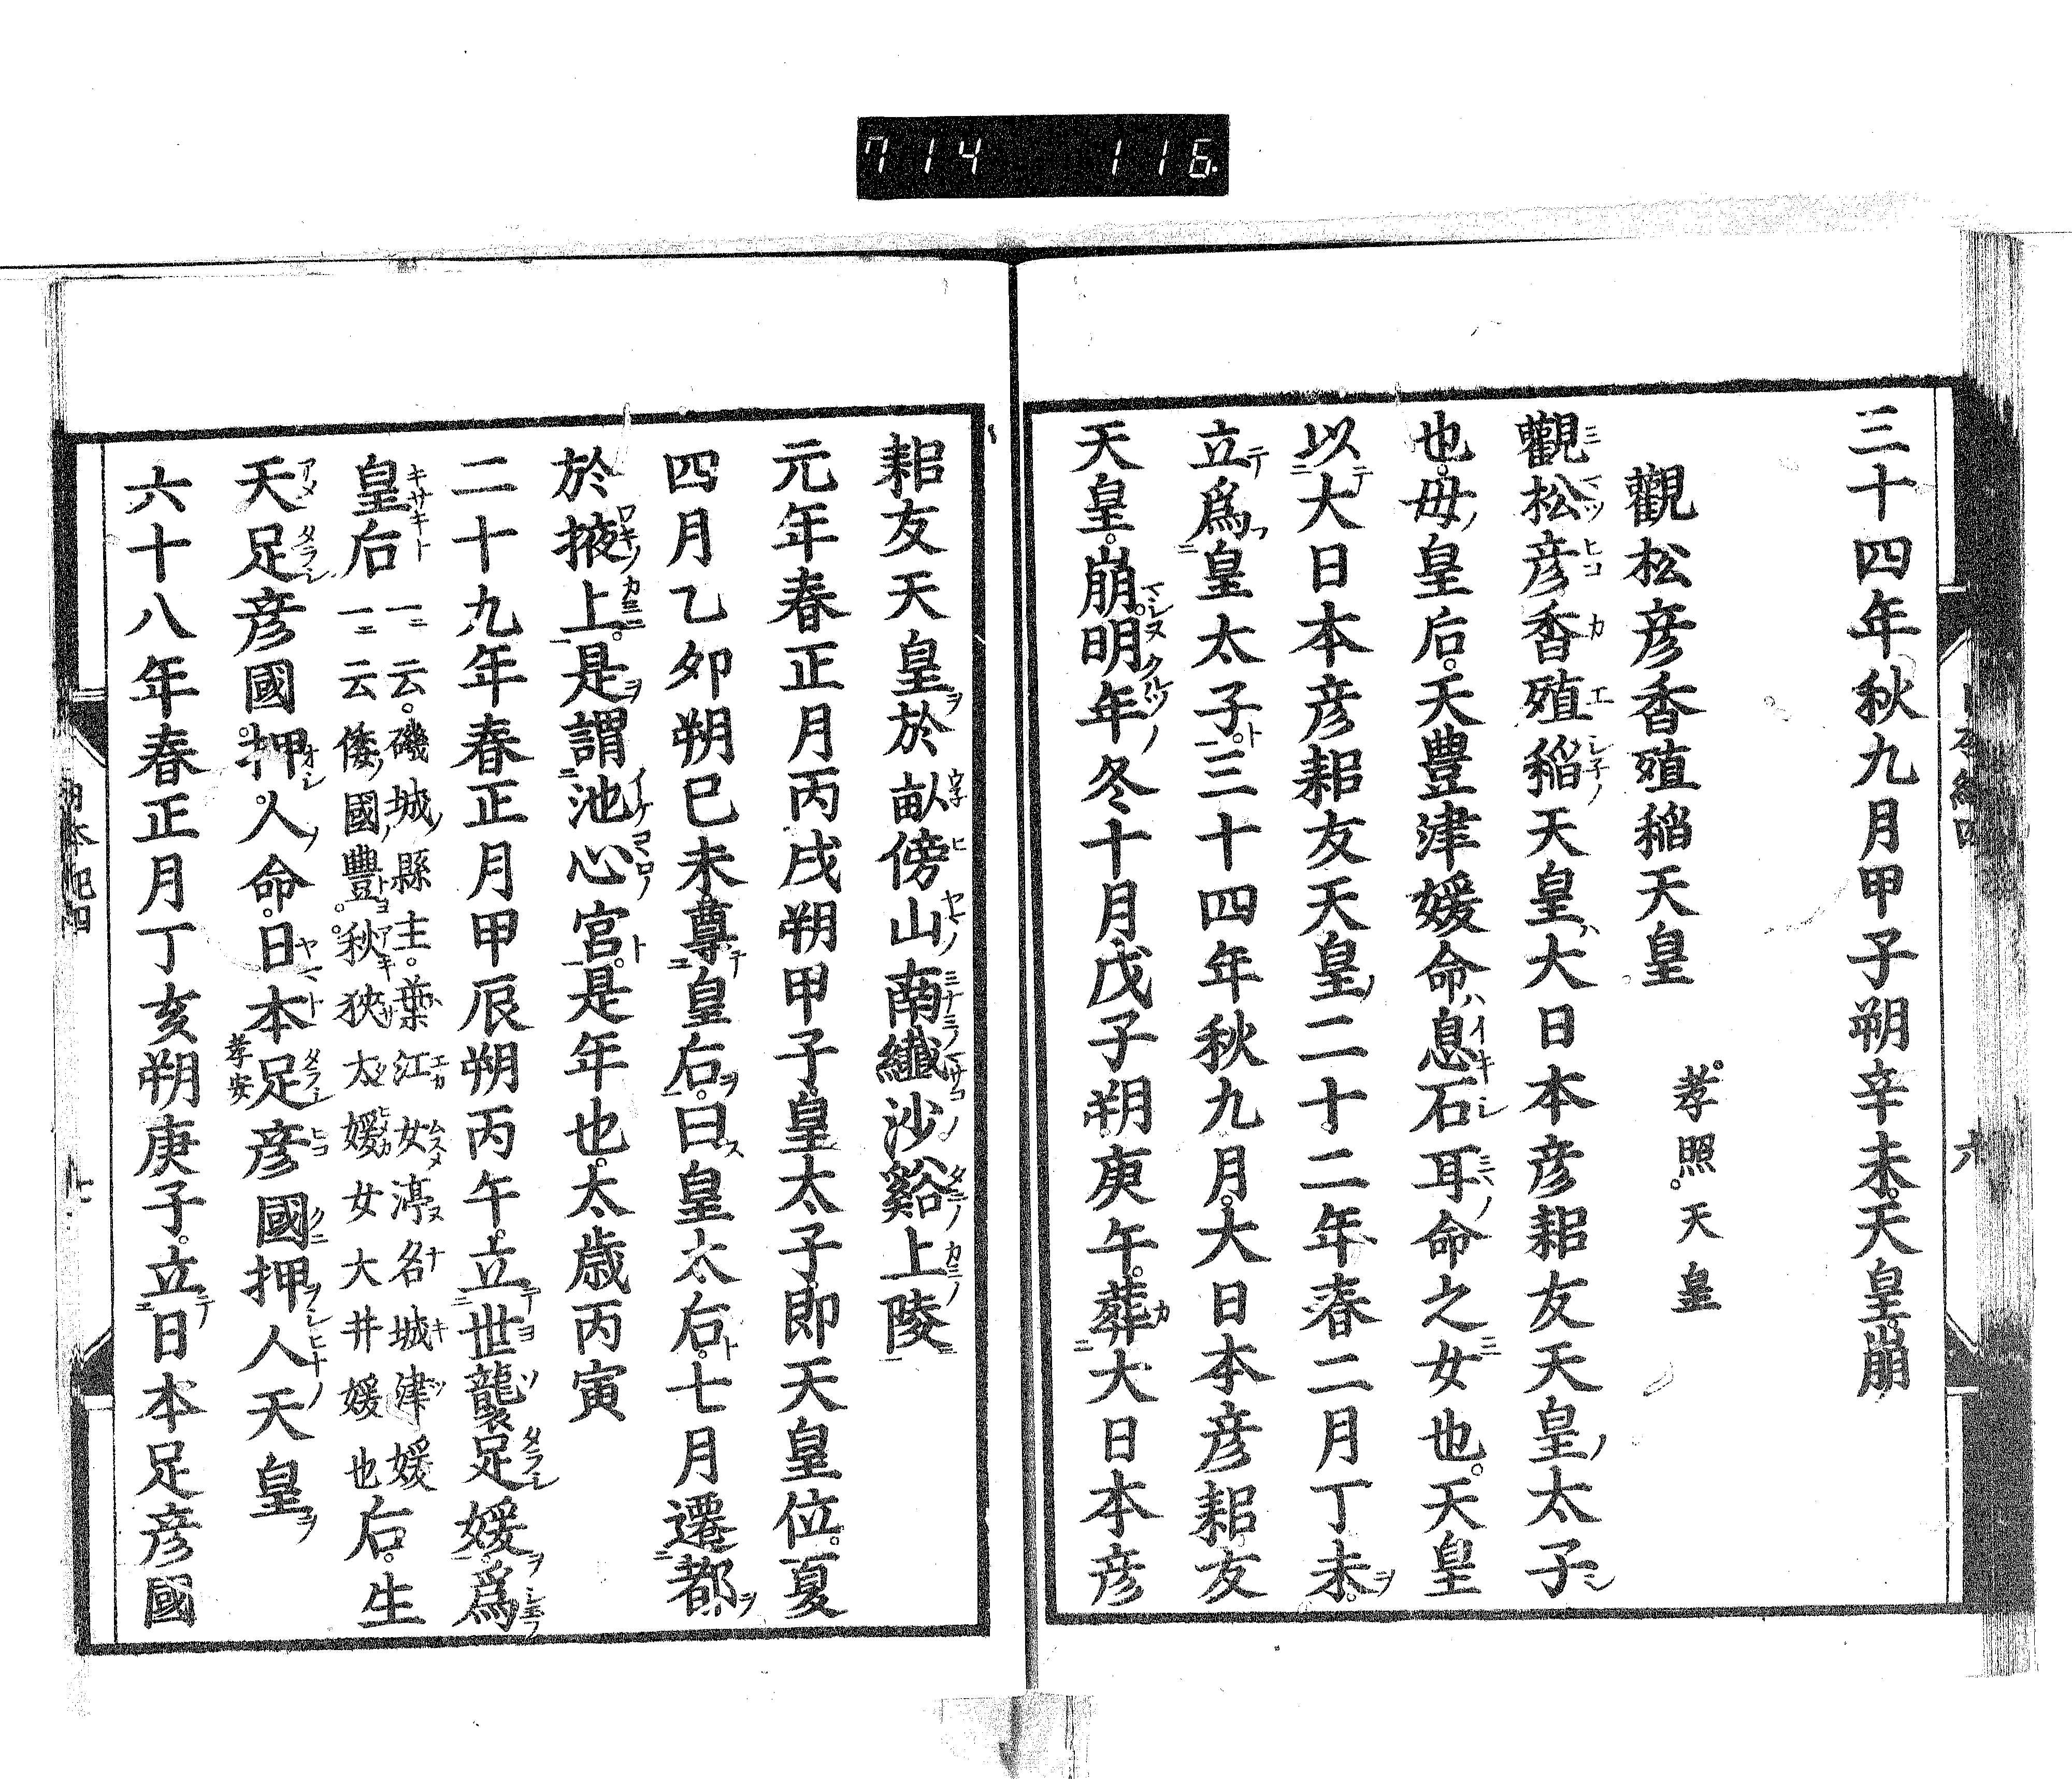 714 116
三十四年秋九月甲子朔辛未天皇崩
觀松彦香殖稲天皇 孝照天皇
觀松彦香殖稲天皇大日本彦耜友天皇太子
也母皇后天豊津媛命息石耳命之女也天皇
以大日本彦耜友天皇二十二年春二月丁未
立爲皇太子三十四年秋九月大日本彦耜友
天皇崩明年冬十月戊子朔庚午葬大日本彦
耜友天皇於畝傍山南纖沙谿上陵
元年春正月丙戌朔甲子皇太子即天皇位夏
四月乙卯朔巳未尊皇后曰皇太后七月遷都
於掖上是謂池心宮是年也太歳丙寅
二十九年春正月甲辰朔丙午立世襲足媛爲
皇后
一云磯城縣主葉江女渟名城津媛
一云倭國豐秋狹太媛女大井媛也
后生
天足彦國押人命日本足彦國押人天皇
孝安
六十八年春正月丁亥朔庚子立日本足彦國